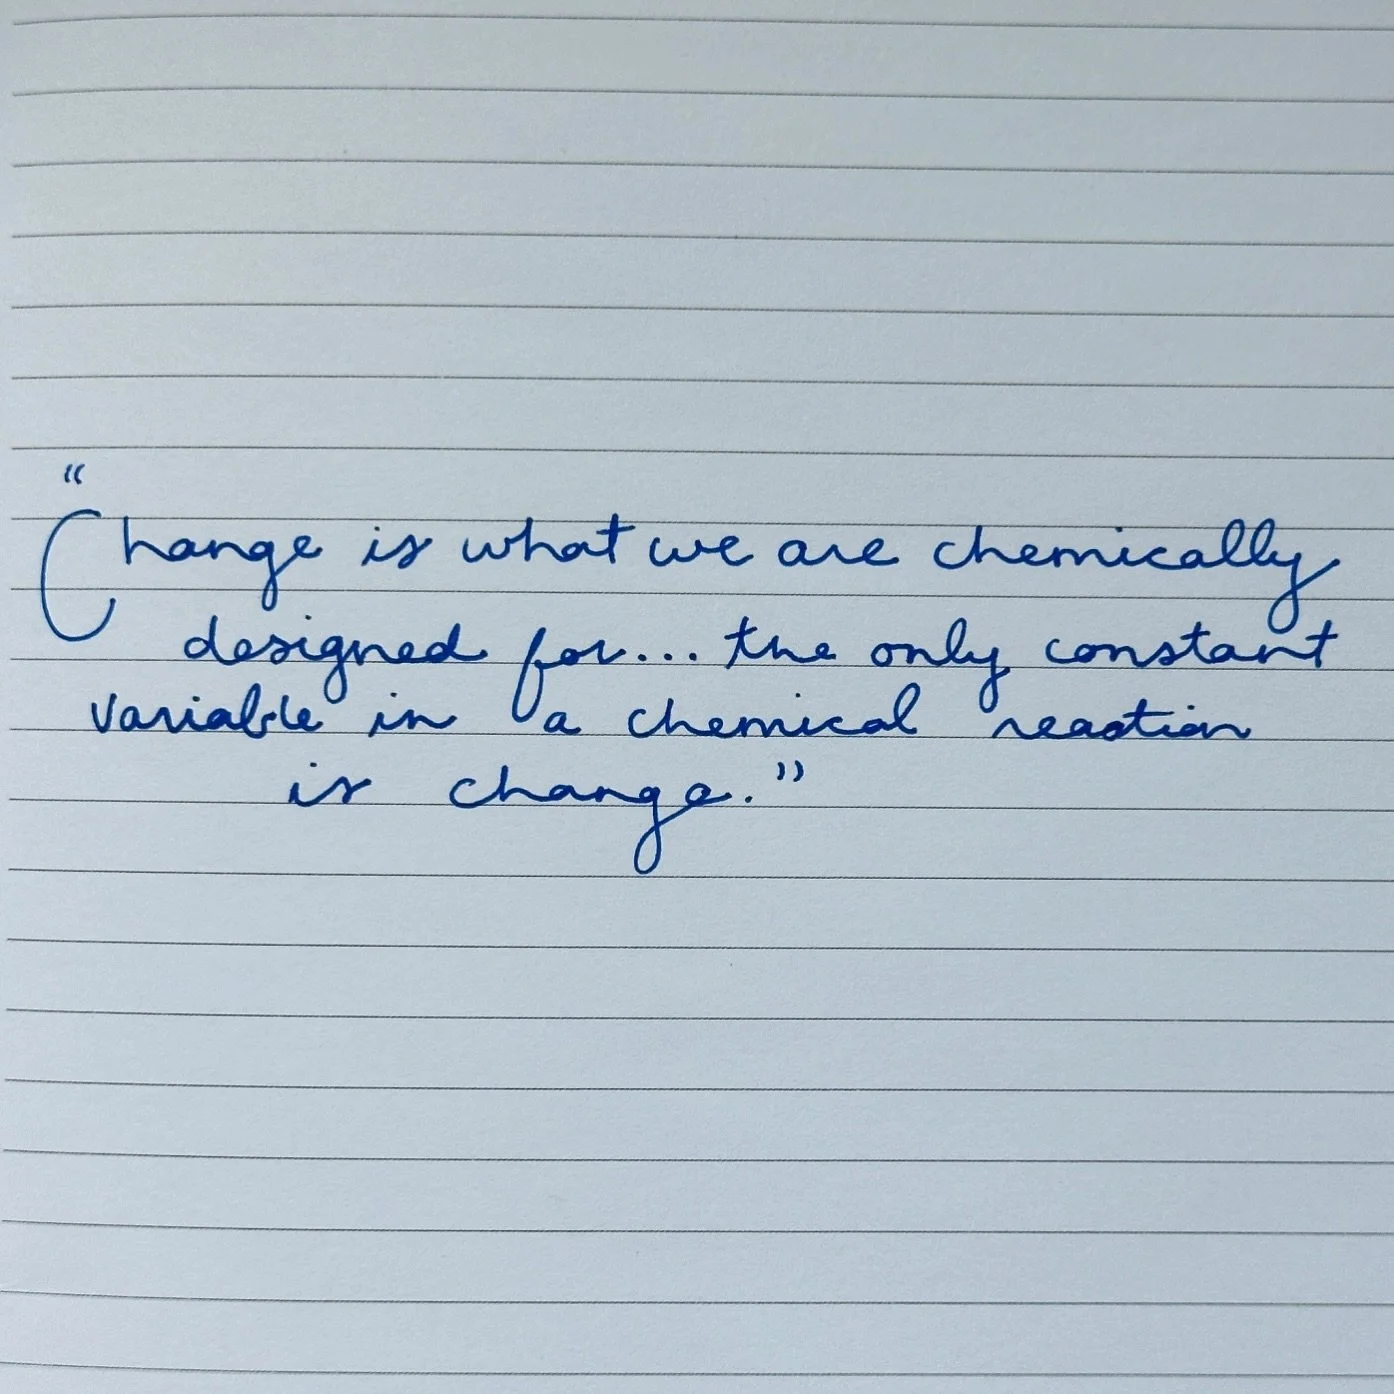 "Change is what we are chemically
designed for... the only constant
variable in a chemical reaction
is change."